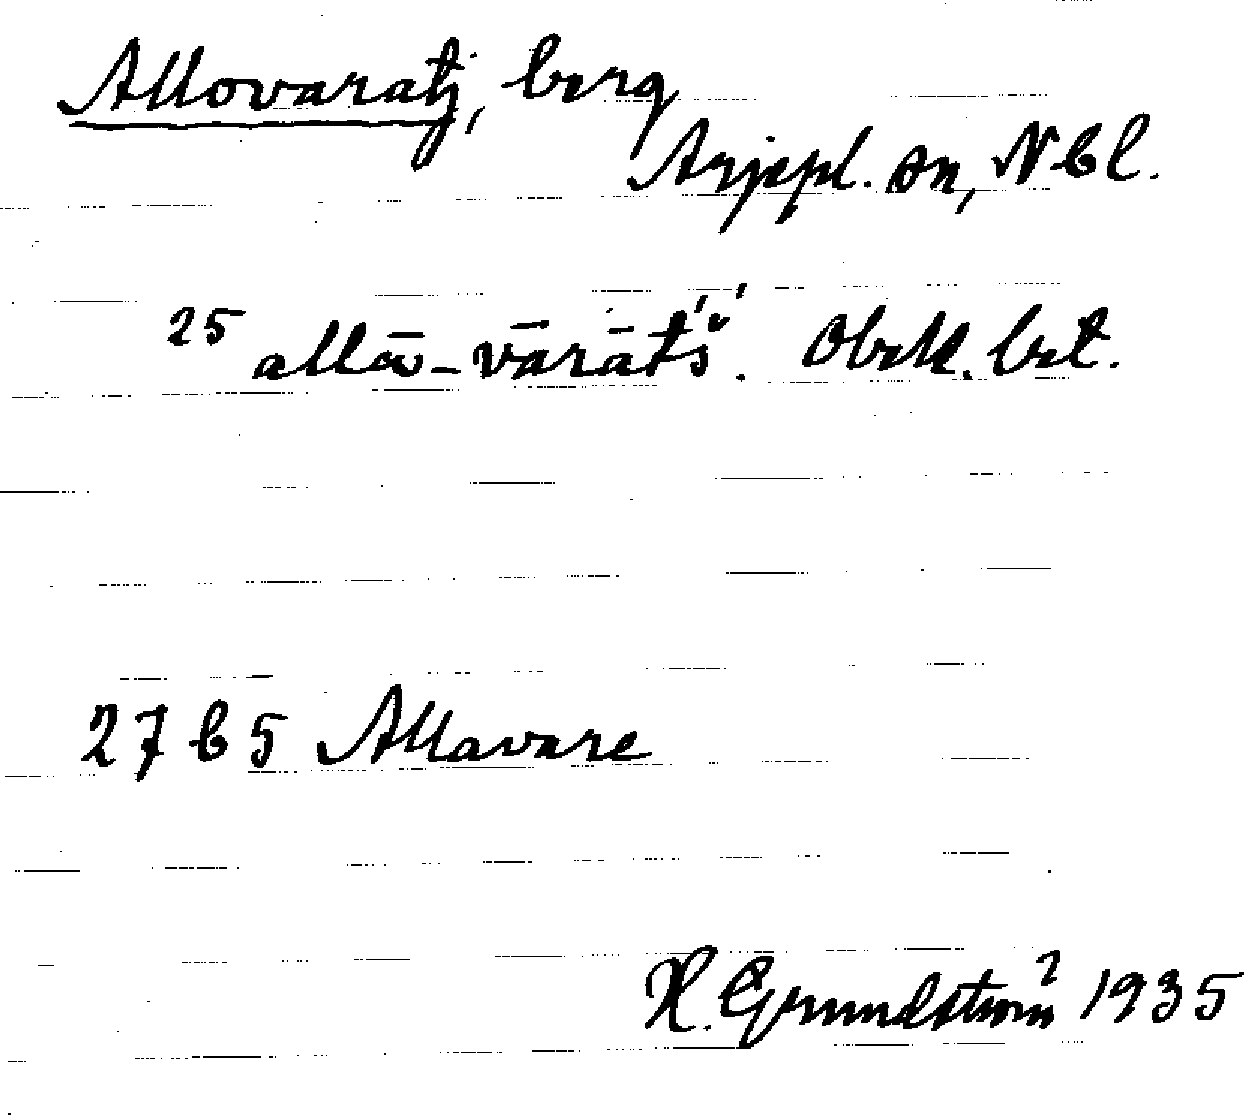 Allovaratj, berg
Arjepl. sn, Nbl.
25 allā-vārāt'š'. Obek. bet.
27 b 5 Allavare
H. Grundström 1935